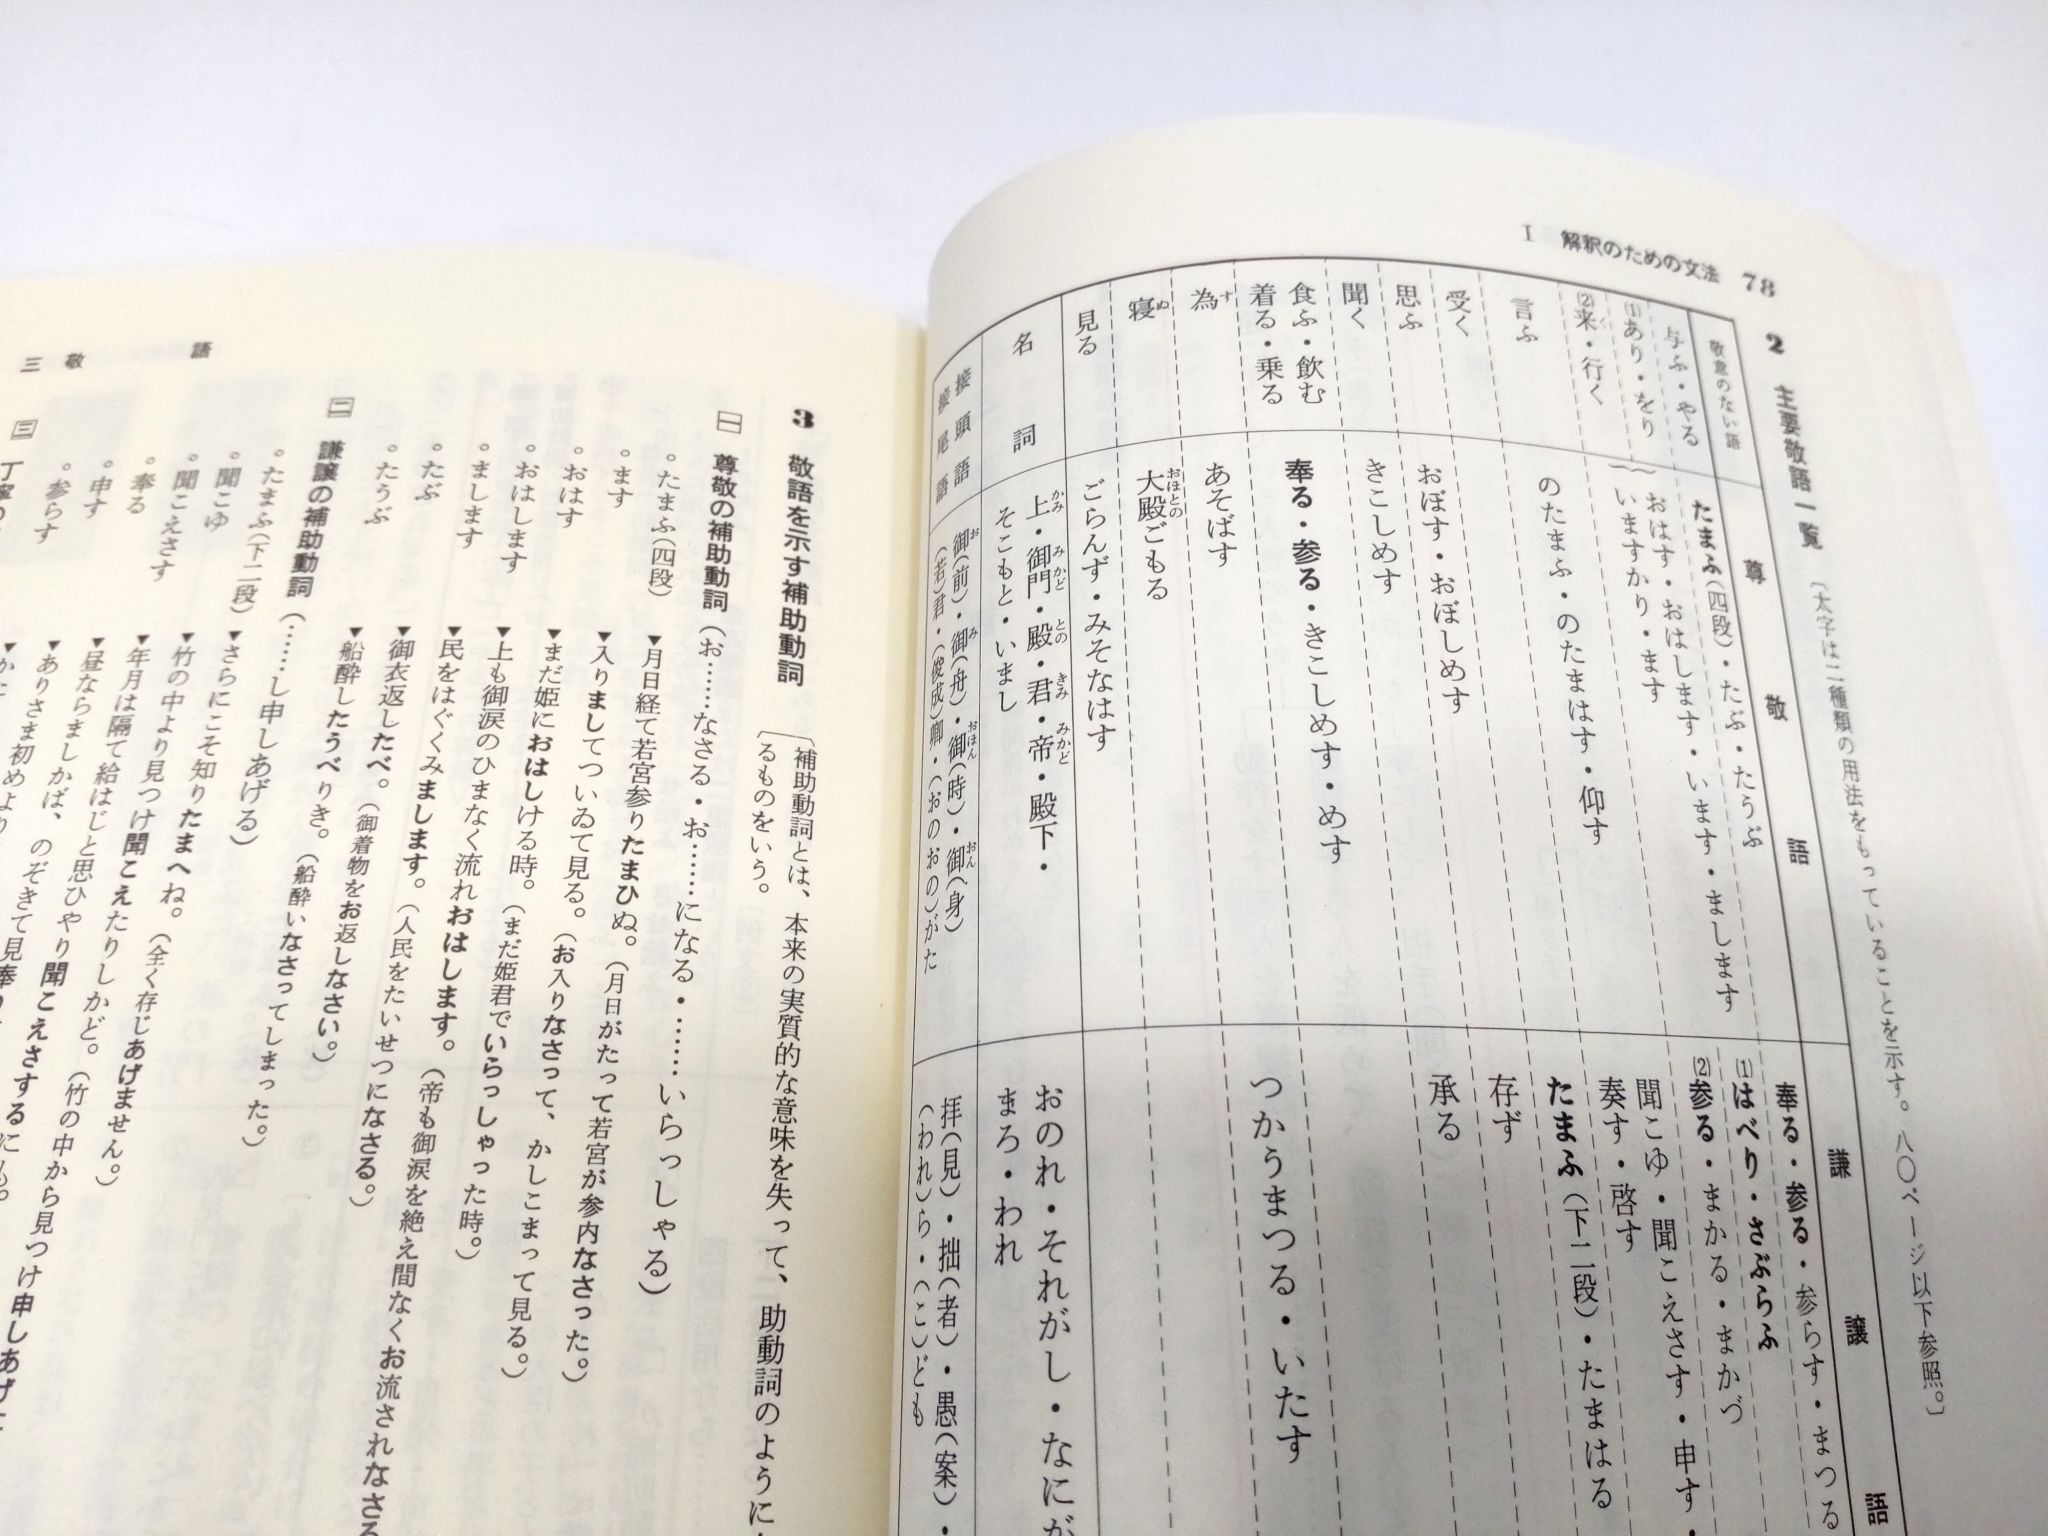 I 解釈のための文法 78
2 主要敬語一覧 〔太字は二種類の用法をもっていることを示す。八〇ページ以下参照。〕
敬意のない語
尊敬語
謙譲語
与ふ・やる
たまふ(四段)・たぶ・たうぶ
奉る・参る・参らす・まつる
(1)あり・をり
(2)来・行く
おはす・おはします・います・まします
いますかり・ます
(1)はべり・さぶらふ
(2)参る・まかる・まかづ
言ふ
のたまふ・のたまはす・仰す
聞こゆ・聞こえさす・申す・
奏す・啓す
受く
たまふ(下二段)・たまはる
思ふ
おぼす・おぼしめす
存ず
聞く
きこしめす
承る
食ふ・飲む
着る・乗る
奉る・参る・きこしめす・めす
為す
あそばす
つかうまつる・いたす
寝ぬ
大殿おほとのごもる
見る
ごらんず・みそなはす
名詞
上かみ・御門みかど・殿との・君きみ・帝みかど・殿下・
そこもと・いまし
おのれ・それがし・なにが
まろ・われ
接頭語
接尾語
御お(前)・御み(舟)・御おほん(時)・御おん(身)
(若)君・(俊成)卿・(おのおの)がた
拝(見)・拙(者)・愚(案)・
(われ)ら・(こ)ども
三 敬語
3 敬語を示す補助動詞
〔補助動詞とは、本来の実質的な意味を失って、助動詞のように
るものをいう。
一 尊敬の補助動詞(お……なさる・お……になる・……いらっしゃる)
○たまふ(四段) ▼月日経て若宮参りたまひぬ。(月日がたって若宮が参内なさった。)
○ます ▼入りましてついゐて見る。(お入りなさって、かしこまって見る。)
○おはす ▼まだ姫におはしける時。(まだ姫君でいらっしゃった時。)
○おはします ▼上も御涙のひまなく流れおはします。(帝も御涙を絶え間なくお流されなさる
○まします ▼民をはぐくみまします。(人民をたいせつになさる。)
○たぶ ▼御衣返したべ。(御着物をお返しなさい。)
○たうぶ ▼船酔したうべりき。(船酔いなさってしまった。)
二 謙譲の補助動詞(……し申しあげる)
○たまふ(下二段) ▼さらにこそ知りたまへね。(全く存じあげません。)
○聞こゆ ▼竹の中より見つけ聞こえたりしかど。(竹の中から見つけ申しあげ
○聞こえさす ▼年月は隔て給はじと思ひやり聞こえさするにも。
○奉る ▼昼ならましかば、のぞきて見奉り
○申す ▼ありさま初めより
○参らす
三 丁寧の